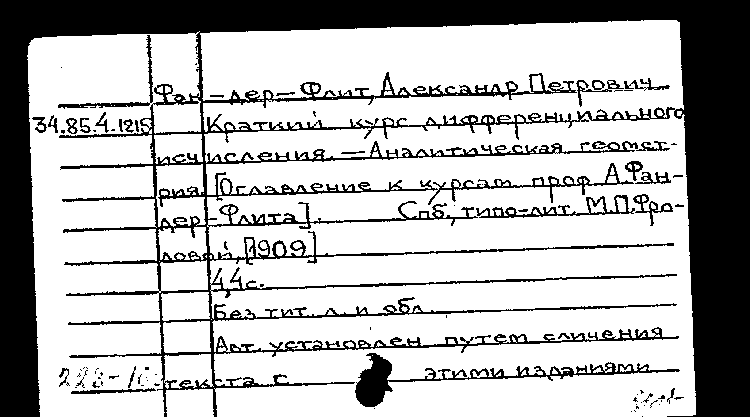 Фан-дер-Флит, Александр Петрович
34.85.4.1215 Краткий курс дифференциального
исчисления. — Аналитическая геомет-
рия. [Оглавление к курсам проф А.Фан-
дер-Флита]. Спб., типо-лит. М.П.Фро-
ловой, [1909].
4,4с.
Без тит. л. и обл.
Авт. установлен путем сличения
текста с этими изданиями